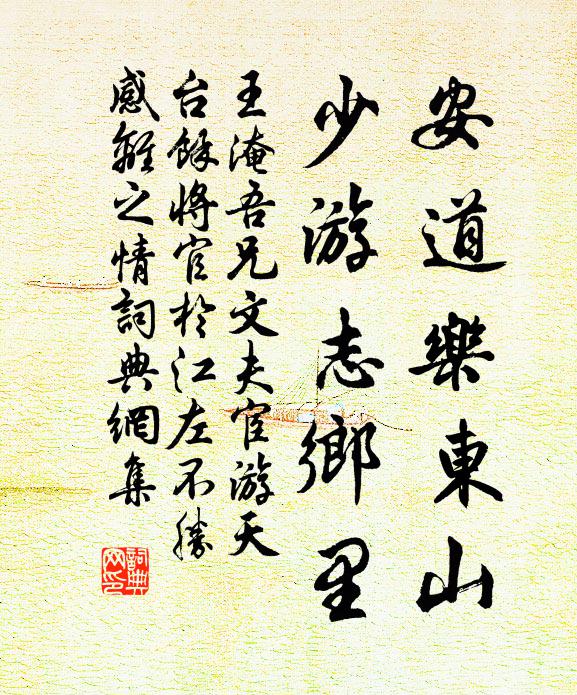 安道樂東山
少游志鄉里
王淹吾兄文夫宦游天
台餘將官於江左不勝
感離之情詞典網集
詞典
网印